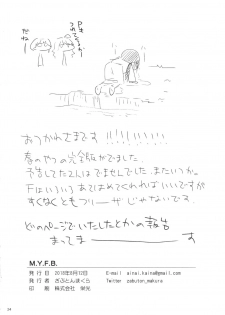 Pオ
だね!
おつかれさまです!!!!!!!
春のやつの完全版がでました。
予告してた2人はでませんでした。またいつか。
Fはいろいろあてはめてくれればいいですが
すくなくともフリーザじゃないです。
どのページでいたしたとかの報告
まってまーーーす
M.Y.F.B.
発行日 2018年8月12日 E-mail ainai.kaina@gmail.com
発行 ざぶとんまくら Twitter zabuton_makura
印刷 株式会社 栄光